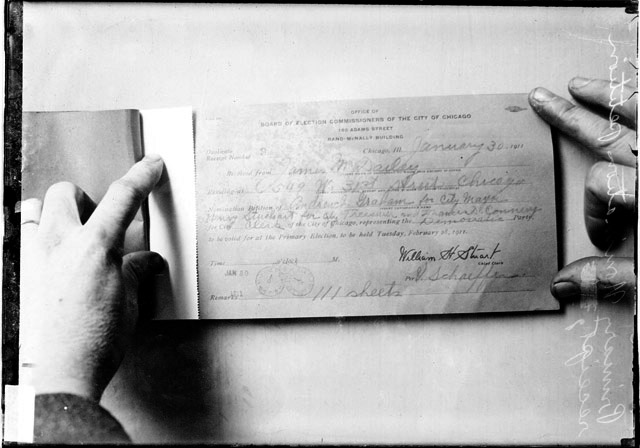 OFFICE OF
BOARD OF ELECTION COMMISSIONERS OF THE CITY OF CHICAGO
ADAMS STREET
RAND-McNALLY BUILDING
Duplicate
Receipt Number Chicago, Ill. January 30, 1911
Received from James
Residing at W. Street, Chicago
Nomination Petition of Andrew J. Graham for City Mayor
Henry Stuckart for City Treasurer and Francis D. Connery
for City Clerk of the City of Chicago, representing the Democratic Party
to be voted for at the Primary Election, to be held Tuesday, February 28, 1911.
Time M. William H. Stuart
Chief Clerk
JAN 30 per Schaeffer
1911
Remarks 111 sheets
Primary Nomination Petition
receipt